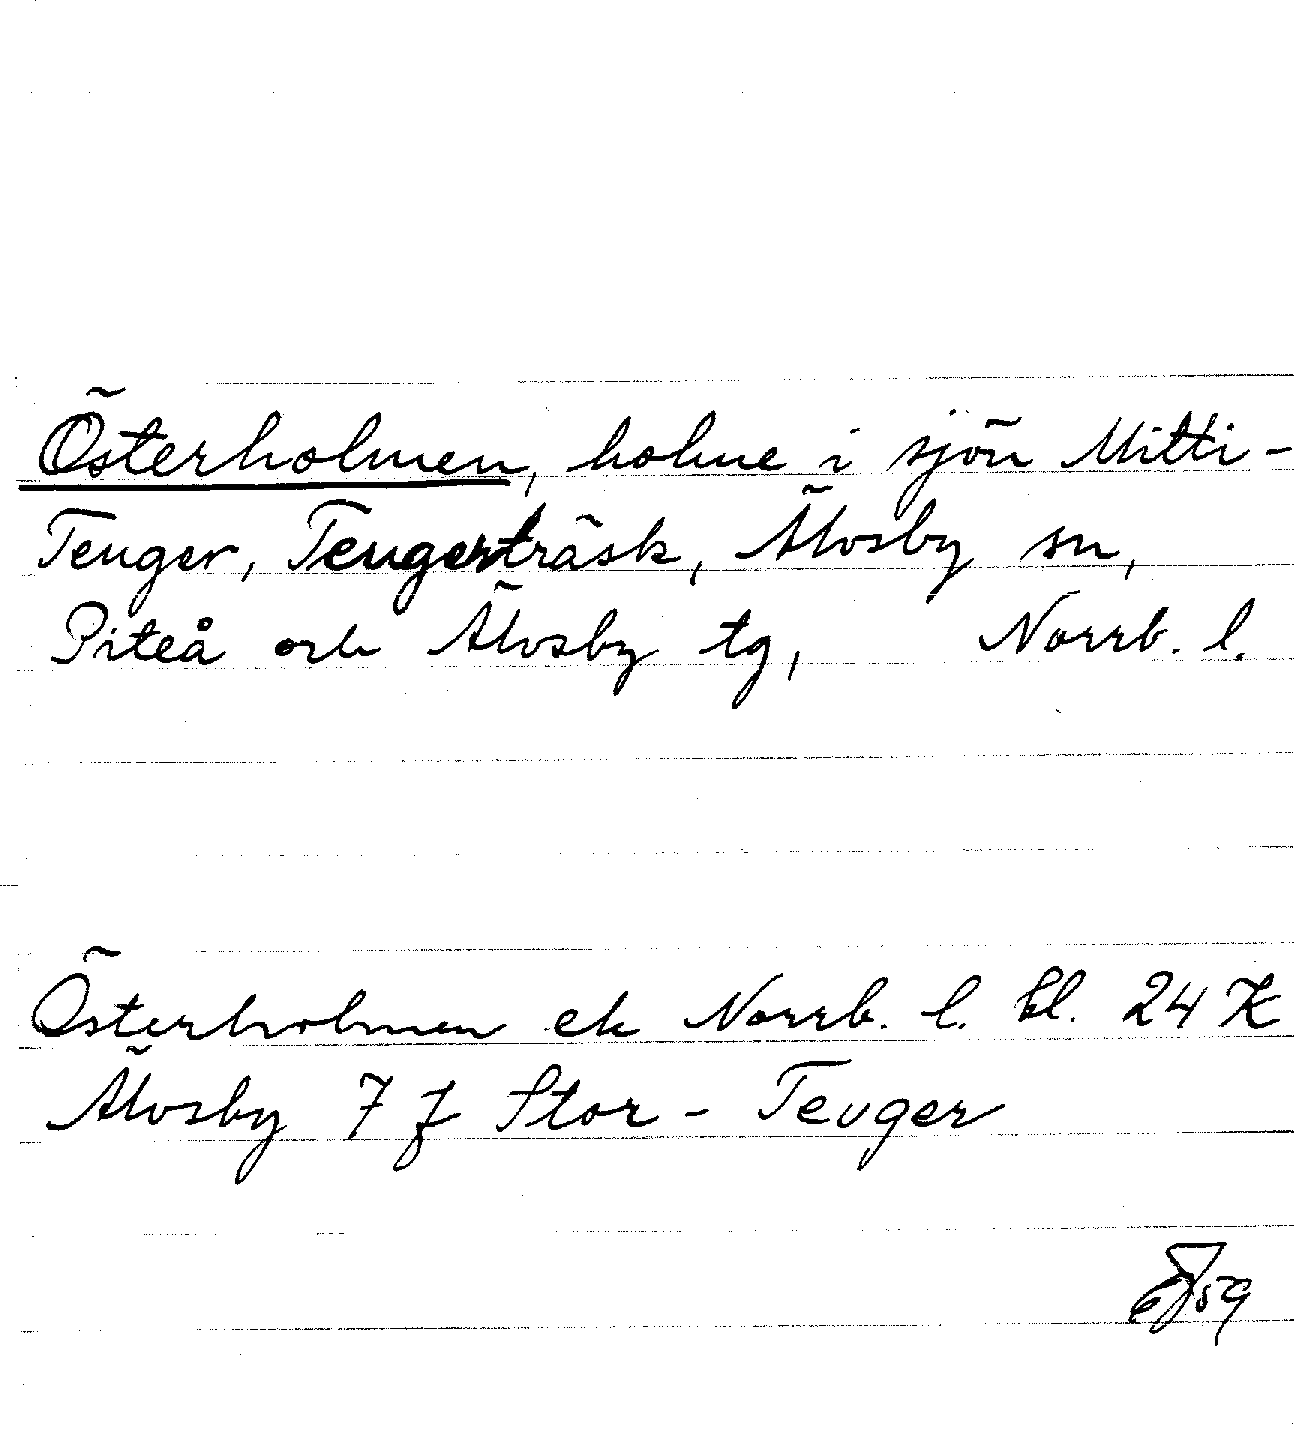 Österholmen, holme i sjön Mitti-
Teuger, Teugerträsk, Älvsby sn,
Piteå och Älvsby tg, Norrb. l.
Österholmen ek Norrb. l. bl. 24 K
Älvsby 7 f Stor-Teuger
59